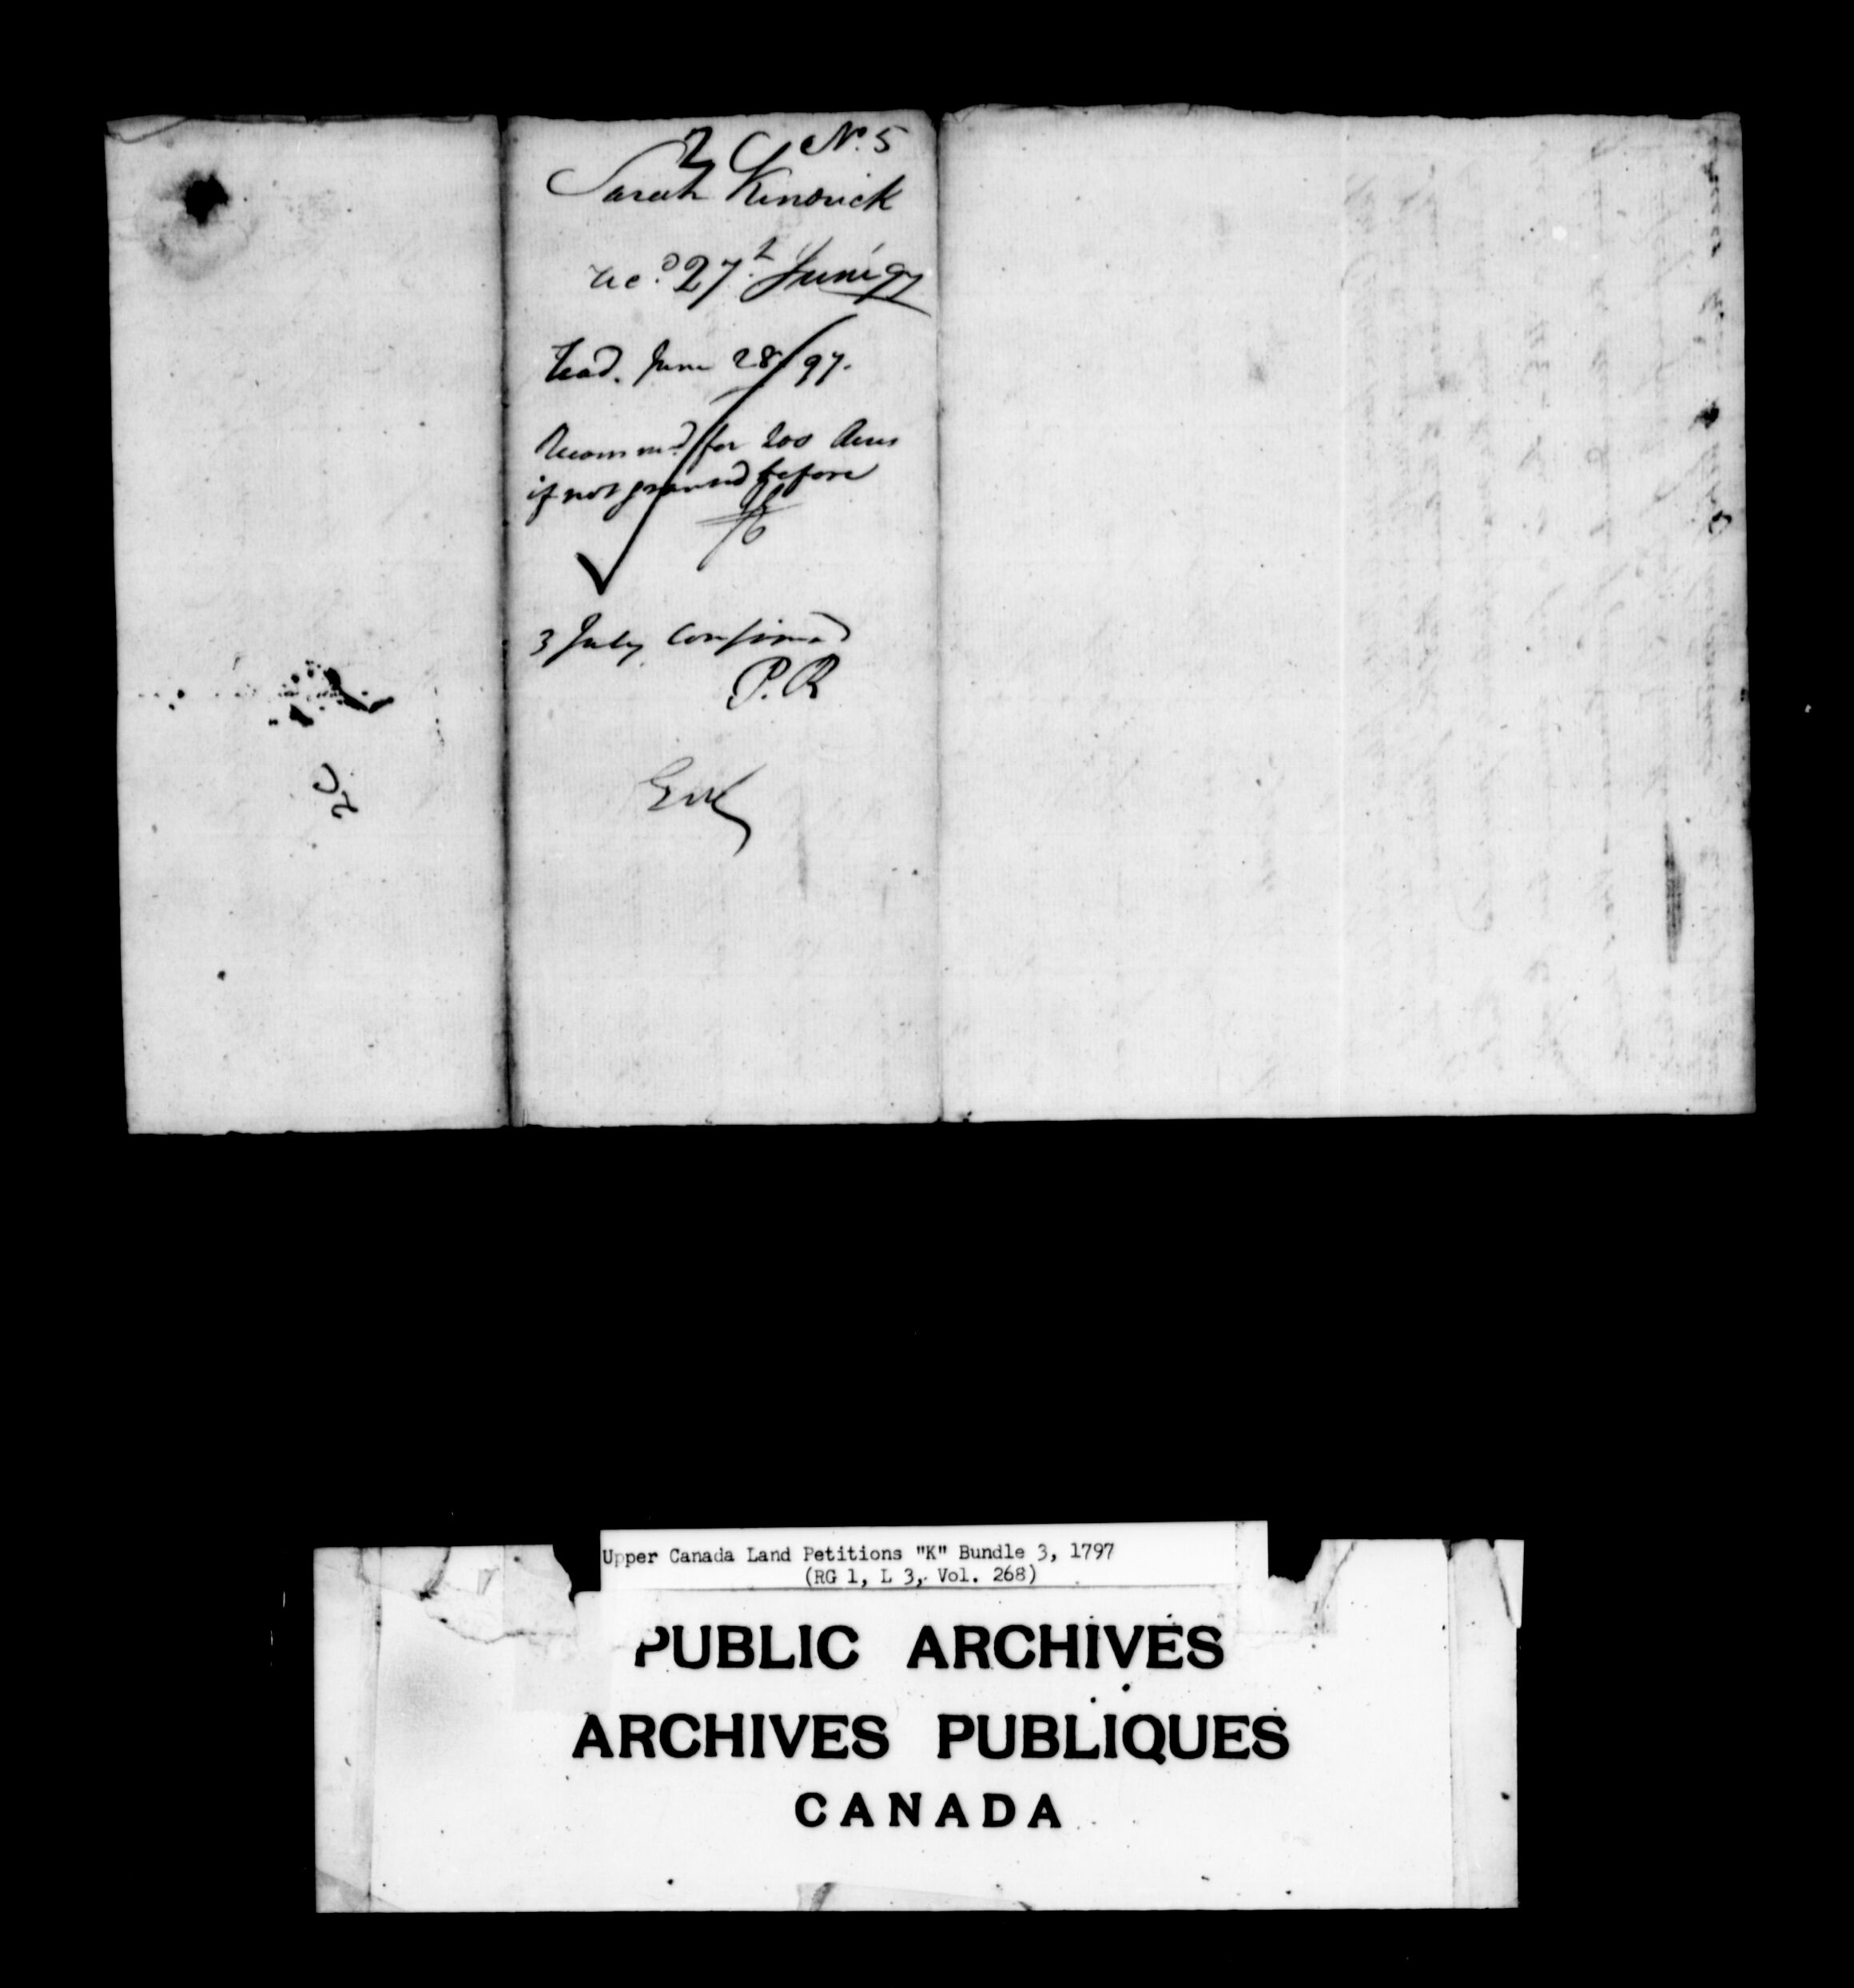 2 C No. 5
Sarah Kendrick
rec.d 27.h June 97
Read. June 28/97.
Recommd for 200 Acres
if not granted before
3 July Confirmed
P.R
Upper Canada Land Petitions "K" Bundle 3, 1797
(RG 1, L 3, Vol. 268)
PUBLIC ARCHIVES
ARCHIVES PUBLIQUES
CANADA